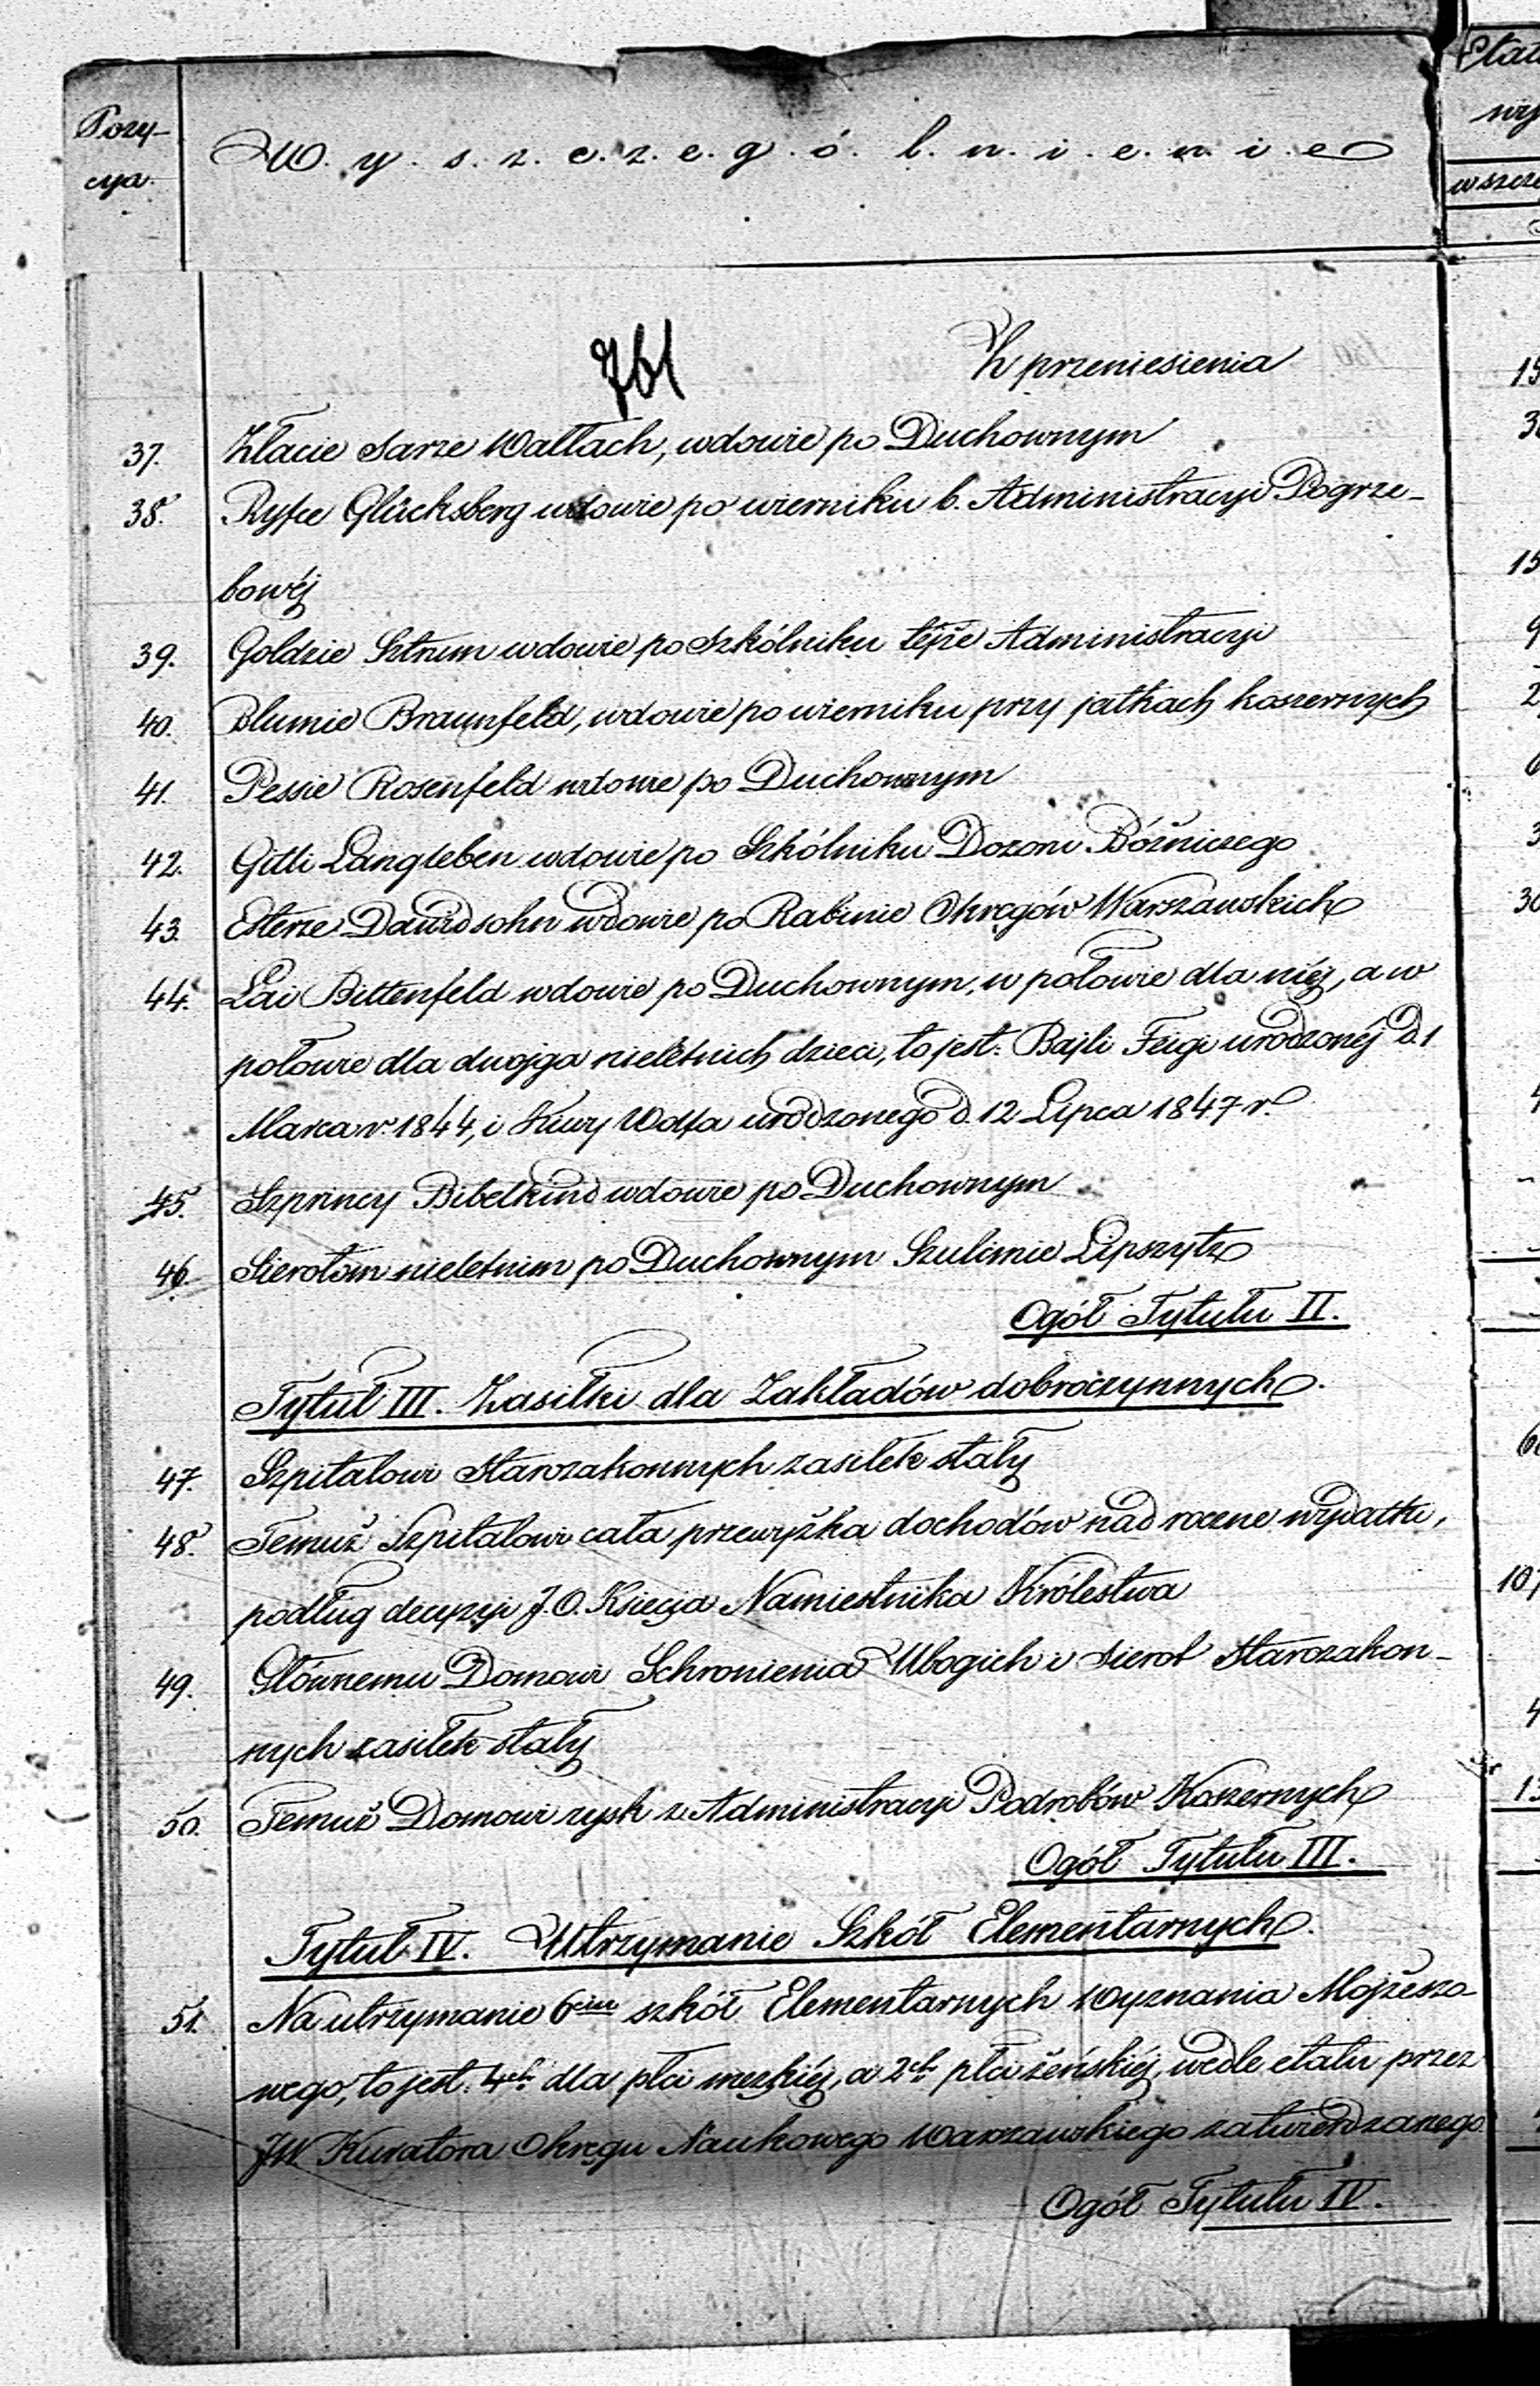 Pozy-
cya.
W. y. s. z. c. z. e. g. ó. l. n. i. e. n. i. e
wszcze
761
Z przeniesienia
37. Złacie Sarze Wallach, wdowie po Duchownym
38. Ryfce Glücksberg wdowie po wierniku b. Administracyi Pogrze-
bowéj
39. Goldzie Sztrum wdowie po Szkólniku téjże Administracyi
40. Blumie Braunfeld, wdowie po wierniku przy jatkach koszernych
41. Pessie Rosenfeld wdowie po Duchownym
42. Gitli Langleben wdowie po Szkólniku Dozoru Bóźniczego
43. Esterze Dawidsohn wdowie po Rabinie Okręgów Warszawskich
44. Łai Bittenfeld wdowie po Duchownym, w połowie dla niéj, a w
połowie dla dwojga nieletnich dzieci, to jest: Bajli Feigi urodzonéj d. 1
Marca r. 1844, i Wolfa urodzonego d. 12 Lipca 1847 r.
45. Szprincy Bibelkind wdowie po Duchownym
46. Sierotom nieletnim po Duchownym Szulimie Lipszytz
Ogół Tytułu II.
Tytuł III. Zasiłki dla Zakładów dobroczynnych.
47. Szpitalowi Starozakonnych zasiłek stały
48. Temuż Szpitalowi cała przewyżka dochodów nad roczne wydatki,
podług decyzyi J. O. Księcia Namiestnika Królestwa
49. Głównemu Domowi Schronienia Ubogich i Sierot Starozakon-
nych zasiłek stały
50. Temuż Domowi zysk z Administracyi Podrobów Koszernych
Ogół Tytułu III.
Tytuł IV. Utrzymanie Szkół Elementarnych.
51. Na utrzymanie 6ciu szkół Elementarnych Wyznania Mojżeszo-
wego, to jest: 4ch dla płci męzkiéj, a 2ch płci żeńskiéj, wedle etatu przez
JW Kuratora Okręgu Naukowego Warszawskiego zatwierdzonego
Ogół Tytułu IV.